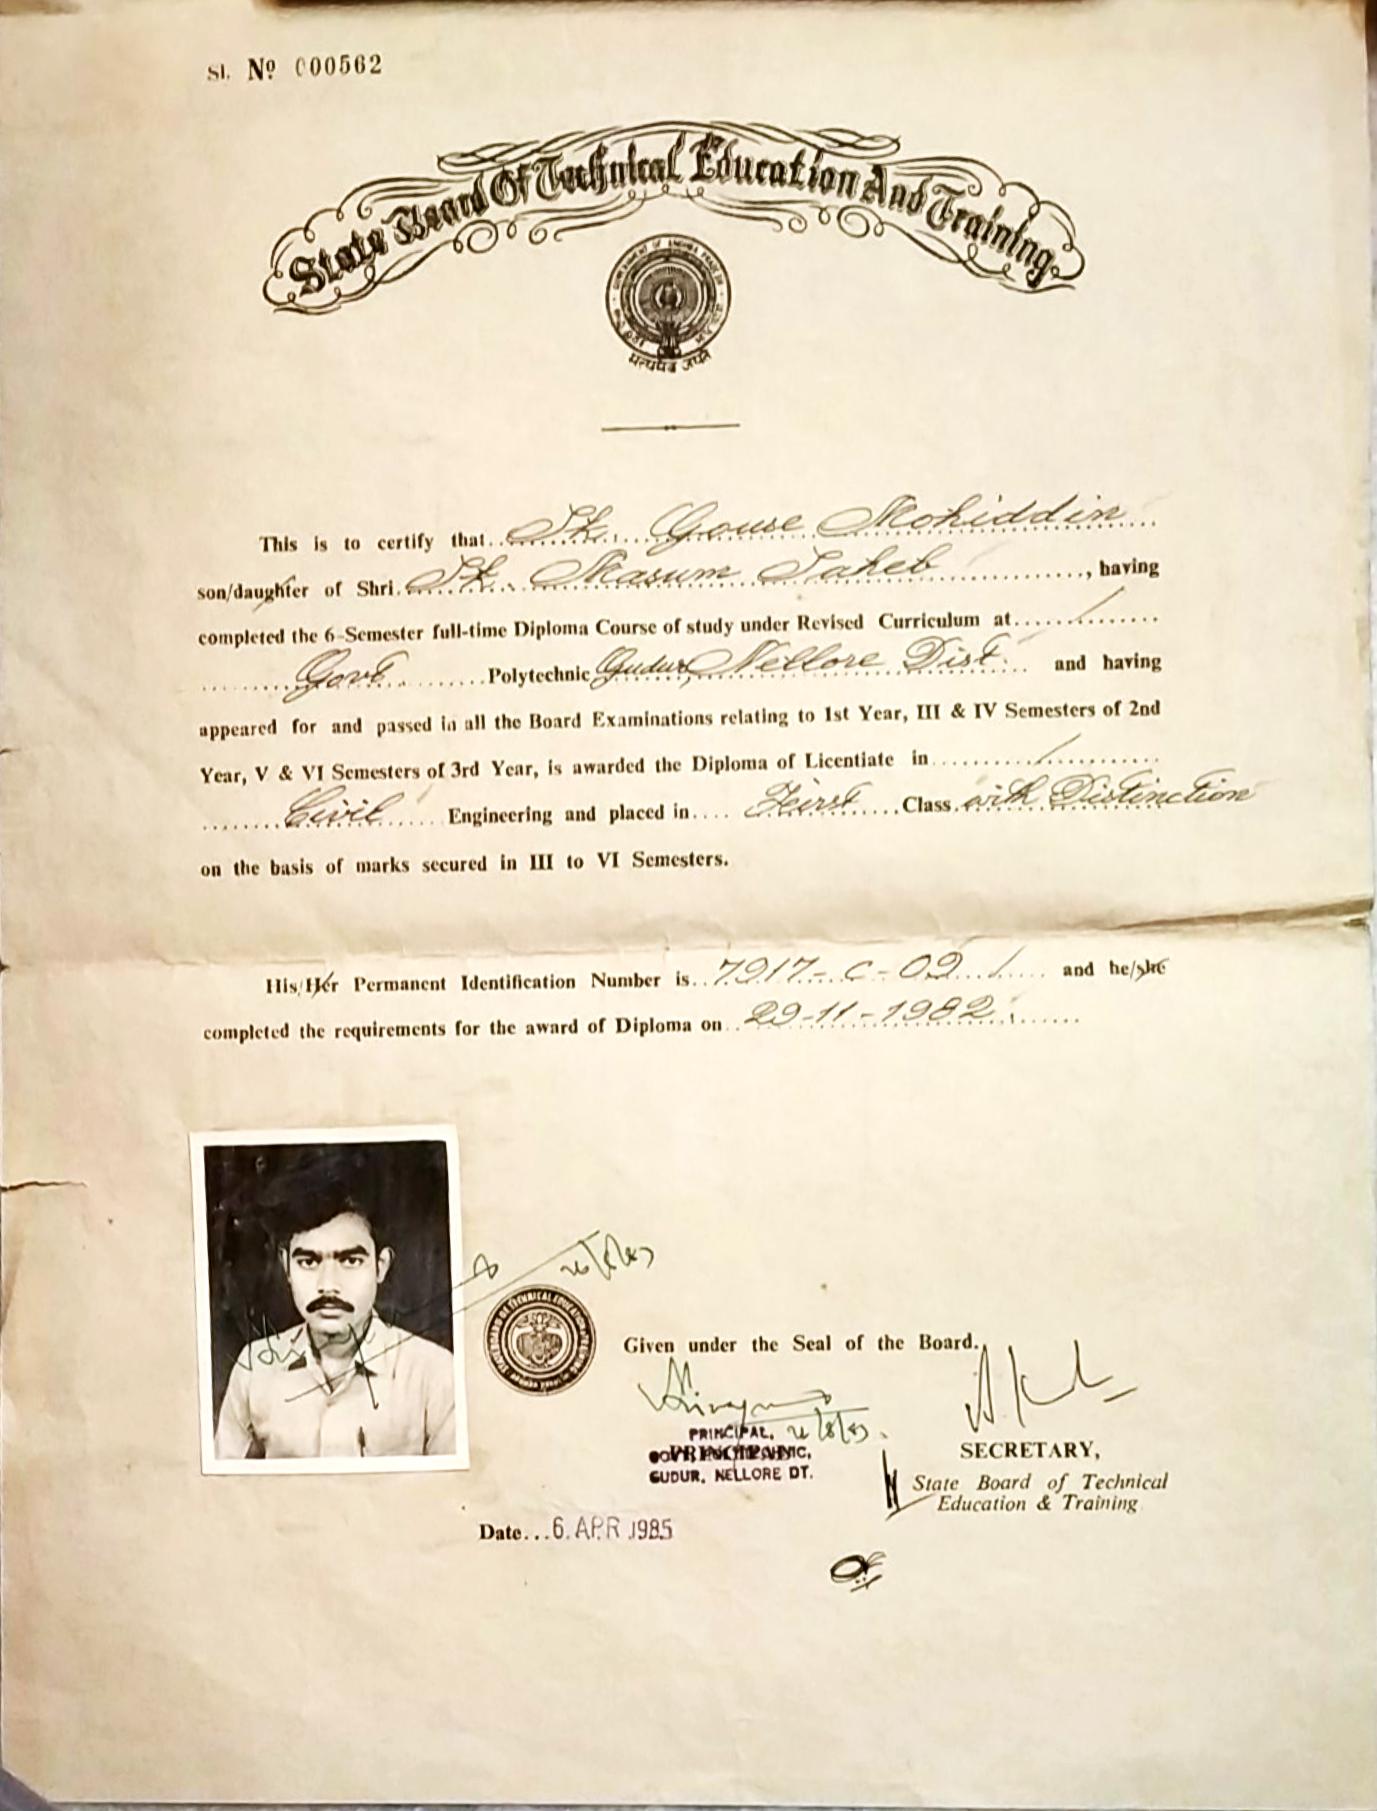 Sl. № 000562
State Board Of Technical Education And Training.
GOVERNMENT OF ANDHRA PRADESH
सत्यमेव जयते
This is to certify that Sk. Gouse Mohiddin
son/daughter of Shri. Sk. Masum Saheb, having
completed the 6-Semester full-time Diploma Course of study under Revised Curriculum at
Govt. Polytechnic Gudur, Nellore Dist. and having
appeared for and passed in all the Board Examinations relating to 1st Year, III & IV Semesters of 2nd
Year, V & VI Semesters of 3rd Year, is awarded the Diploma of Licentiate in
Civil Engineering and placed in First Class with Distinction
on the basis of marks secured in III to VI Semesters.
His/Her Permanent Identification Number is 7917-C-09 and he/she
completed the requirements for the award of Diploma on 29-11-1982.
Given under the Seal of the Board.
PRINCIPAL,
GUDUR, NELLORE DT.
SECRETARY,
State Board of Technical
Education & Training
Date...6 APR 1985